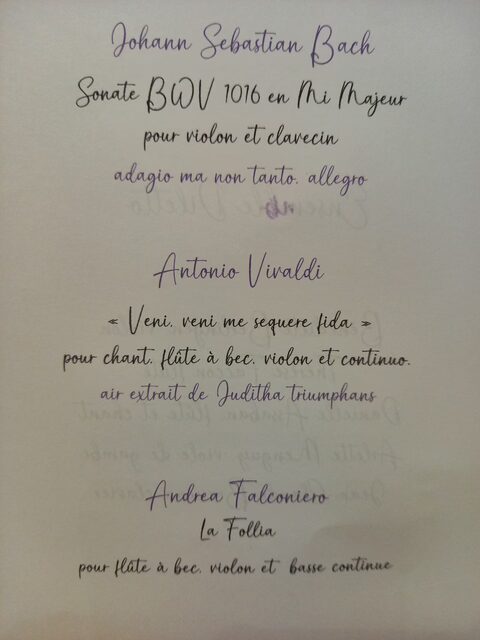 Johann Sebastian Bach
Sonate BWV 1016 en Mi Majeur
pour violon et clavecin
adagio ma non tanto. allegro
Antonio Vivaldi
« Veni. veni me sequere fida »
pour chant. flûte à bec. violon et continuo.
air extrait de Juditha triumphans
Andrea Falconiero
La Follia
pour flûte à bec. violon et basse continue